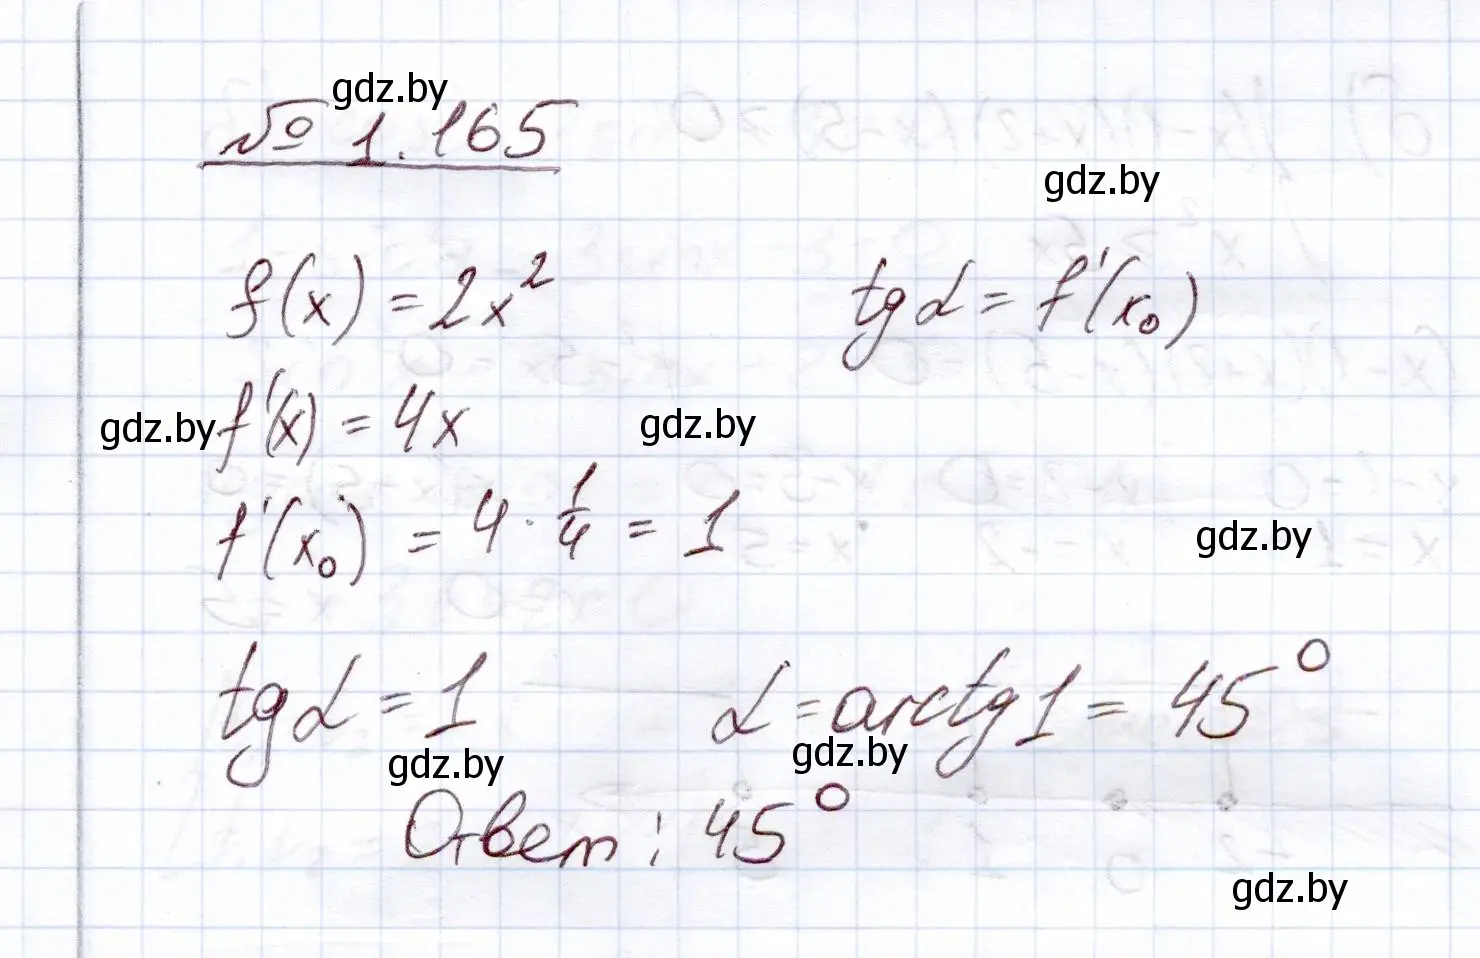 gdz.by
№ 1.165
gdz.by
f(x) = 2x² tg α = f'(x₀)
gdz.by f'(x) = 4x gdz.by
f'(x₀) = 4 · 1/4 = 1
gdz.by
tg α = 1 α = arctg 1 = 45°
gdz.by gdz.by
Ответ: 45°
gdz.by